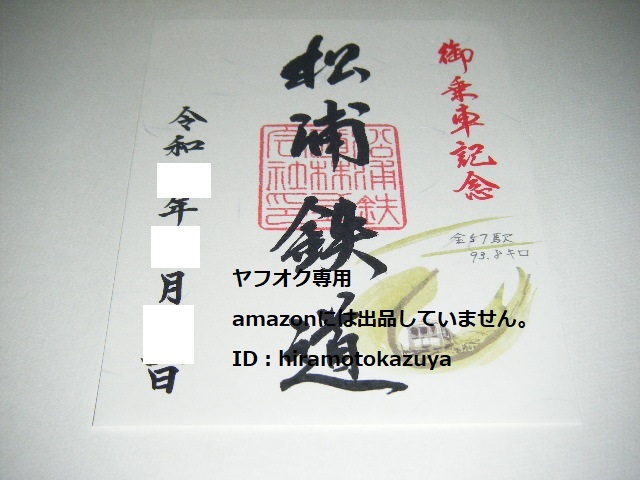 御乗車記念
松浦鉄道
全57駅
93.8キロ
令和 年 月 日
ヤフオク専用
amazonには出品していません。
ID：hiramotokazuya